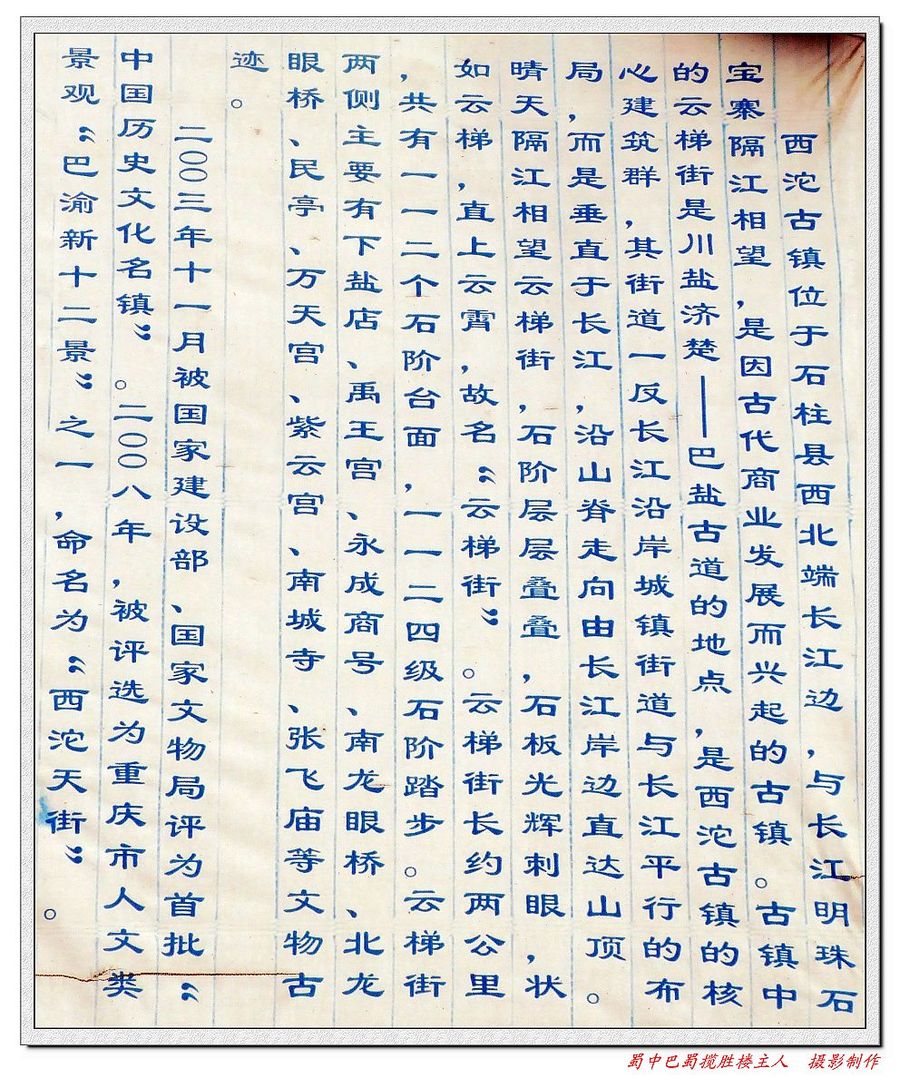 西沱古镇位于石柱县西北端长江边，与长江明珠石
宝寨隔江相望，是因古代商业发展而兴起的古镇。古镇中
的云梯街是川盐济楚——巴盐古道的地点，是西沱古镇的核
心建筑群，其街道一反长江沿岸城镇街道与长江平行的布
局，而是垂直于长江，沿山脊走向由长江岸边直达山顶。
晴天隔江相望云梯街，石阶层层叠叠，石板光辉刺眼，状
如云梯，直上云霄，故名“云梯街”。云梯街长约两公里
，共有一一二个石阶台面，一一二四级石阶踏步。云梯街
两侧主要有下盐店、禹王宫、永成商号、南龙眼桥、北龙
眼桥、民亭、万天宫、紫云宫、南城寺、张飞庙等文物古
迹。
二〇〇三年十一月被国家建设部、国家文物局评为首批“
中国历史文化名镇”。二〇〇八年，被评选为重庆市人文类
景观“巴渝新十二景”之一，命名为“西沱天街”。
蜀中巴蜀揽胜楼主人 摄影制作